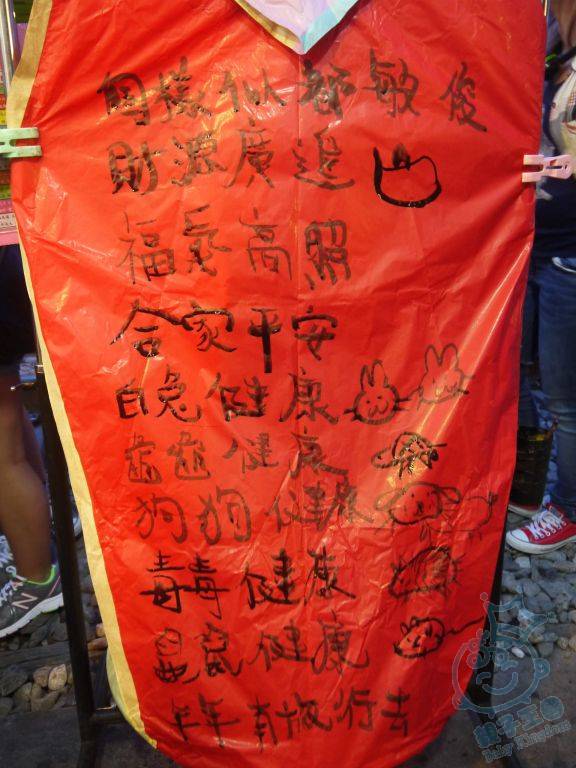 同樣似都敏俊
財源廣進
福氣高照
合家平安
白兔健康
齒齒健康
狗狗健康
毒毒健康
鼠鼠健康
年年有旅行去
親子王國
Baby Kingdom